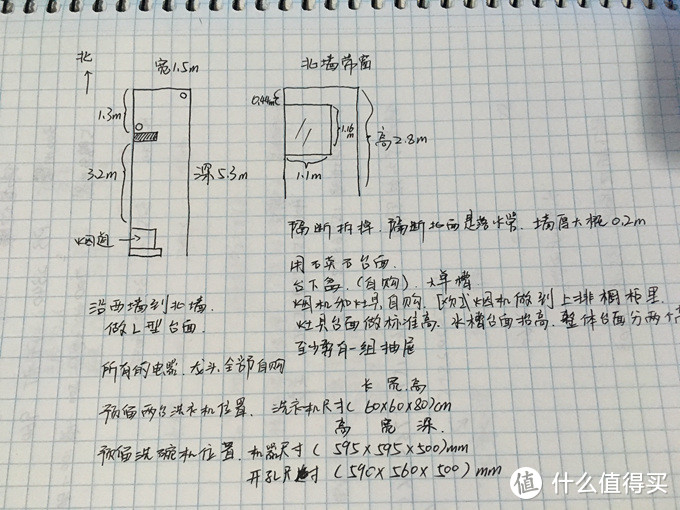 北
宽1.5m
北墙带窗
1.3m
0.44m
1.16m
高2.8m
3.2m
深5.3m
1.1m
烟道
隔断拆掉.隔断北面是落水管.墙厚大概0.2m
用石英石台面.
台下盆.(自购).大单槽
沿西墙到北墙.
烟机和灶具自购.烟机做到上排橱柜里.
做L型台面.
灶具台面做标准高.水槽台面抬高.整体台面分两个高
至少要有一组抽屉
所有的电器.龙头.全部自购
长 宽 高
预留两台洗衣机位置.洗衣机尺寸(60×60×80)cm
高 宽 深.
预留洗碗机位置.机器尺寸(595×595×500)mm
开孔尺寸(590×560×500)mm
值 什么值得买